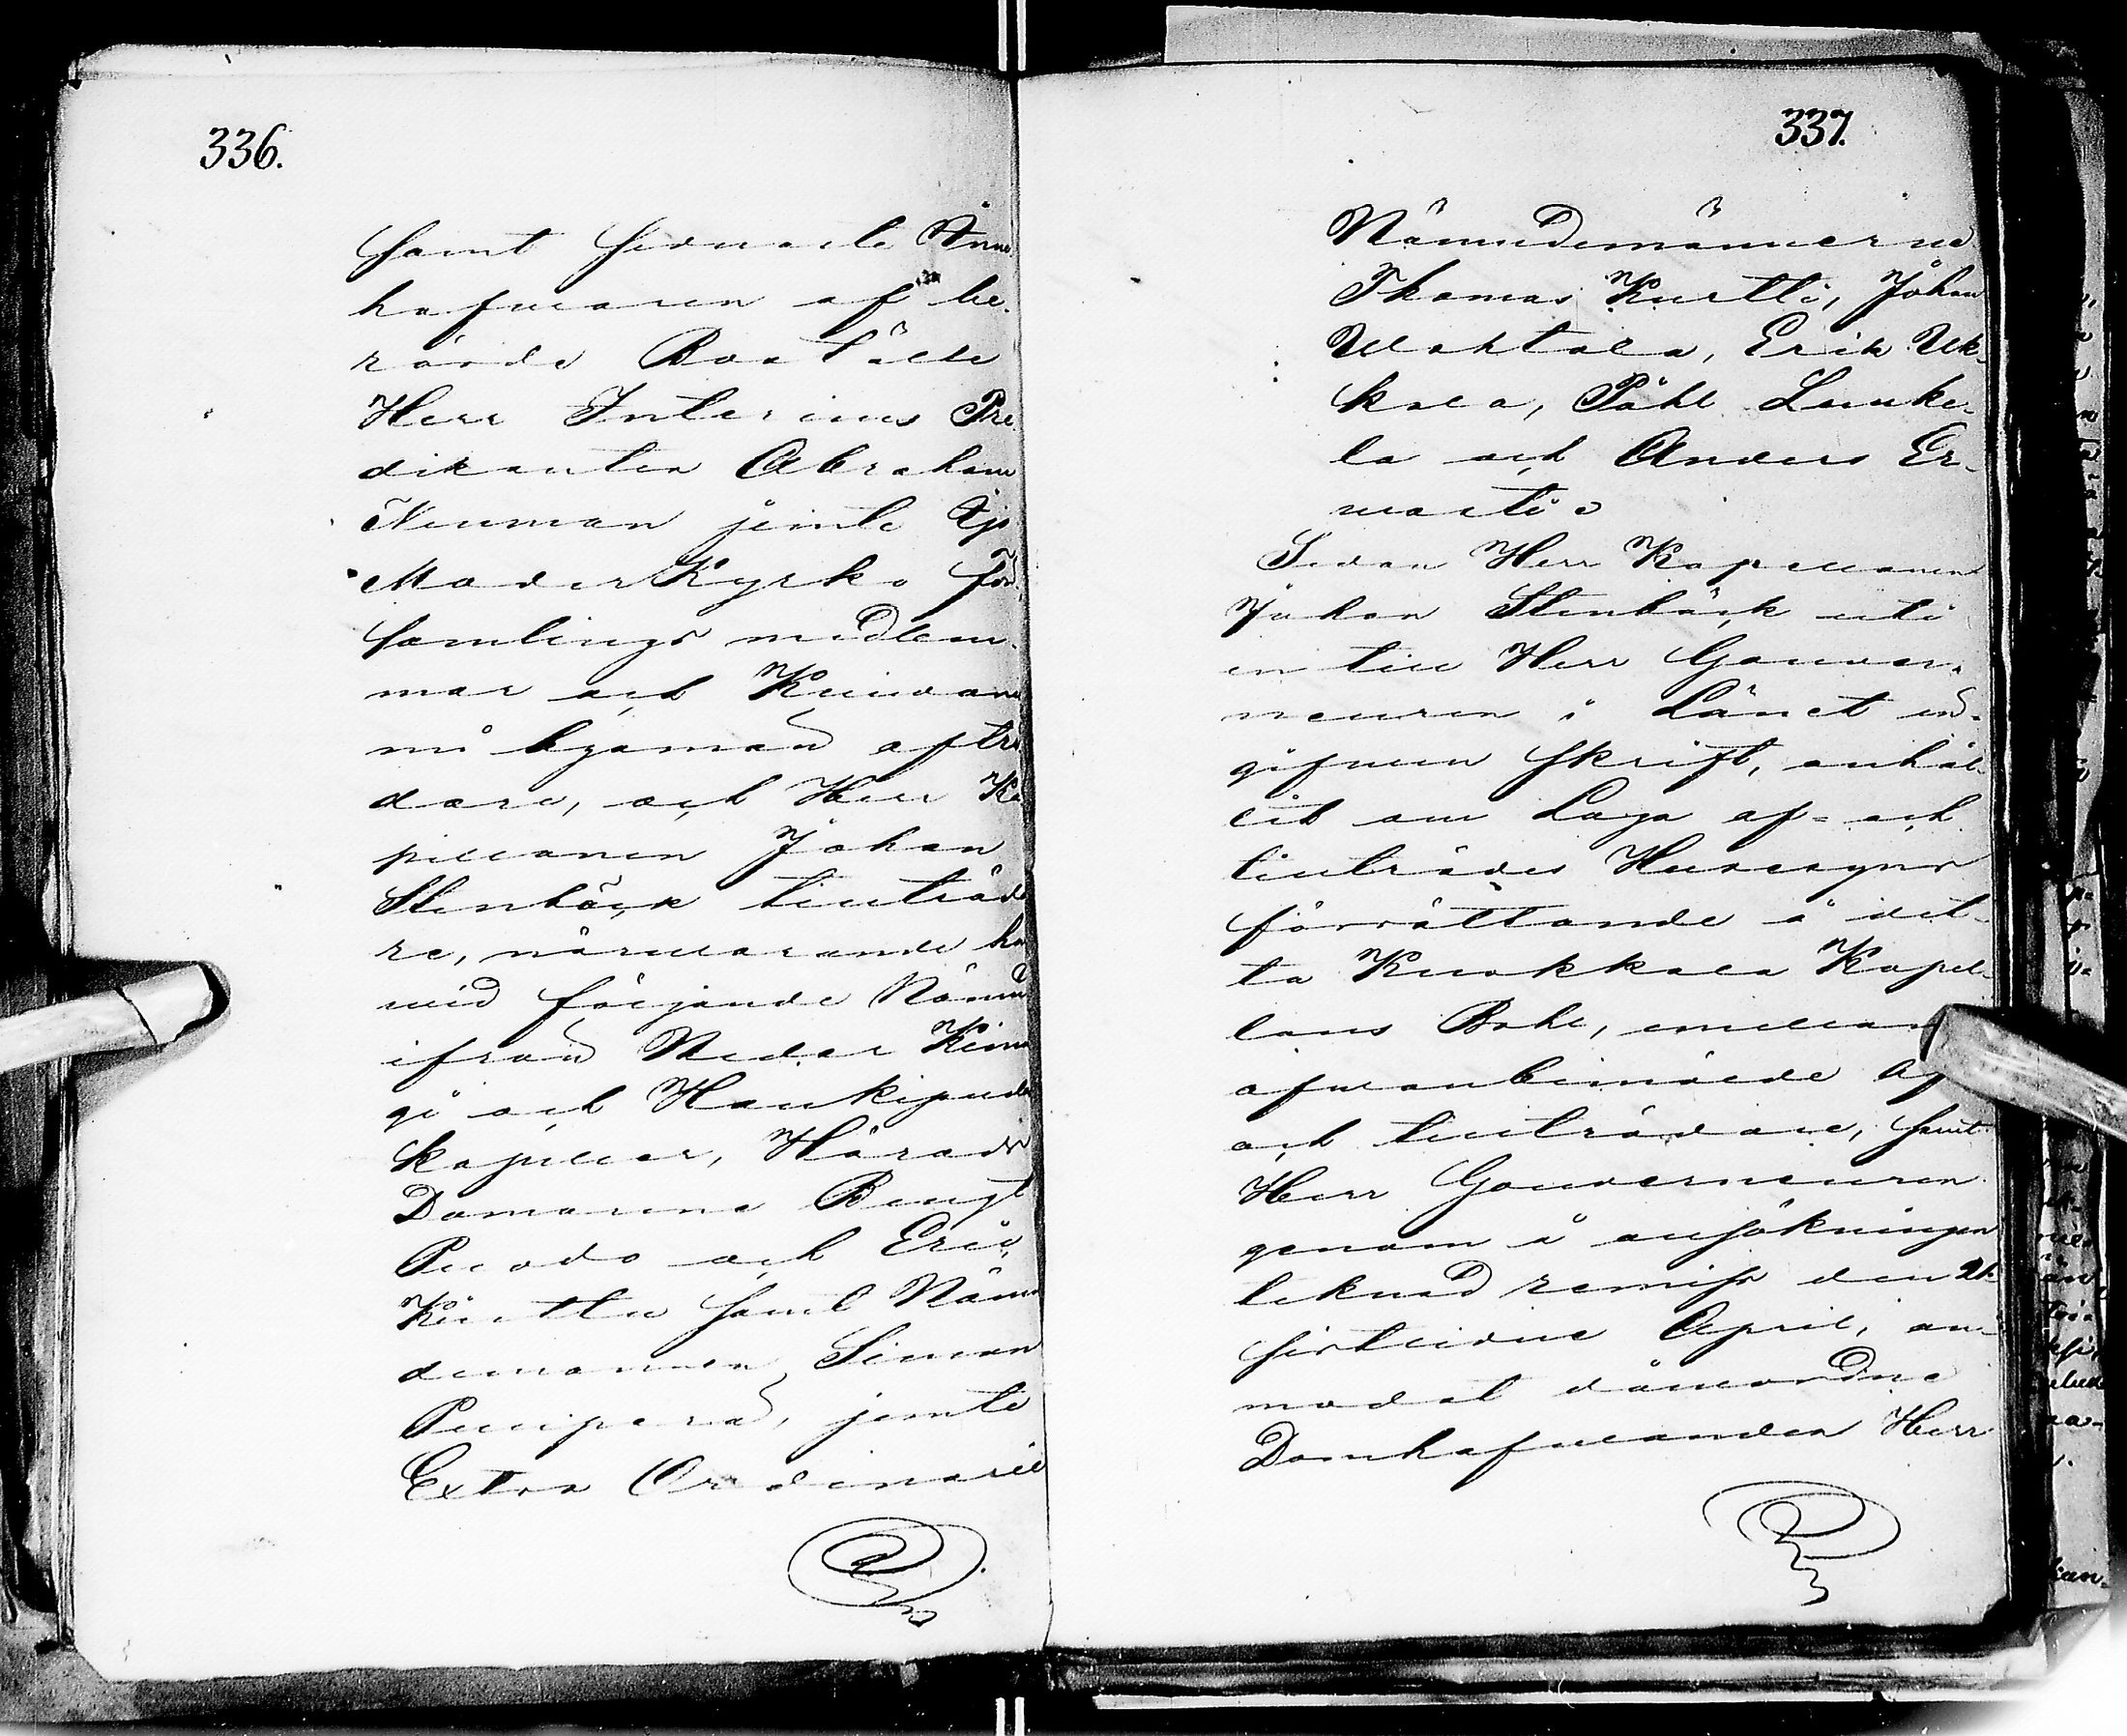 336.
samt förmale Inne
hafwaren af be-
rörde Boställe
Herr Interims Pre
dikanten Abraham
Neuman jemte Ijo
ModerKyrko för-
samlings medlem-
mar och Kuiwanie
mi byamän afträ
dare, och Herr Ka
pellanen Johan
Stenbäck tillträda
re, närwarande här
wid följande Nämnd
ifrån Neder Kimin
gi och Haukipudas
kapeller, Härads
Domarena Bengt
Puodo och Eric
Kurttu samt Näm
demannen Simon
Puuperä, jemte
Extra Ordinarie
337.
Nämndemännerne
Thomas Kurtti, Johan
Wahtola, Erik Uk-
kola, Påhl Luuke-
la och Anders Er-
wasti.
Sedan Herr Kapellanen
Johan Stenbäck uti
en till Herr Gouver-
neuren i Länet in-
gifwen skrift, anhål-
lit om Laga af- och
tillträdes Husesyns
förrättande å det-
ta Kuokkala Kapel-
lans Bohl, emellan
ofwanbemälde af
och tillträdare, samt
Herr Gouverneuren
genom å ansökningen
teknad remiss den 24
sistledne April, an-
modat wälordne
Domhafwanden Herr